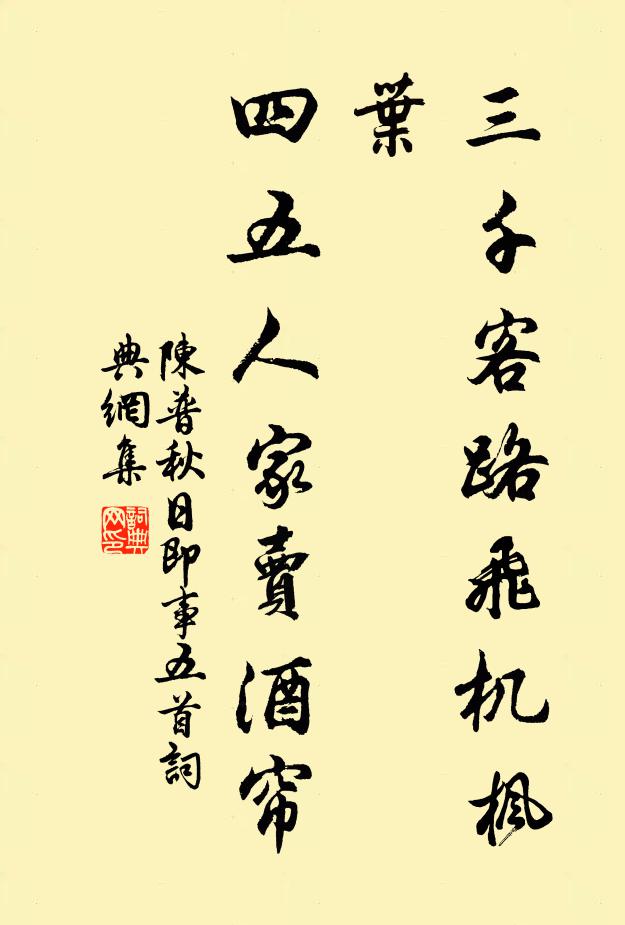 三千客路飛机楓
葉
四五人家賣酒帘
陳普秋日即事五首詞
典網集
詞典
网印